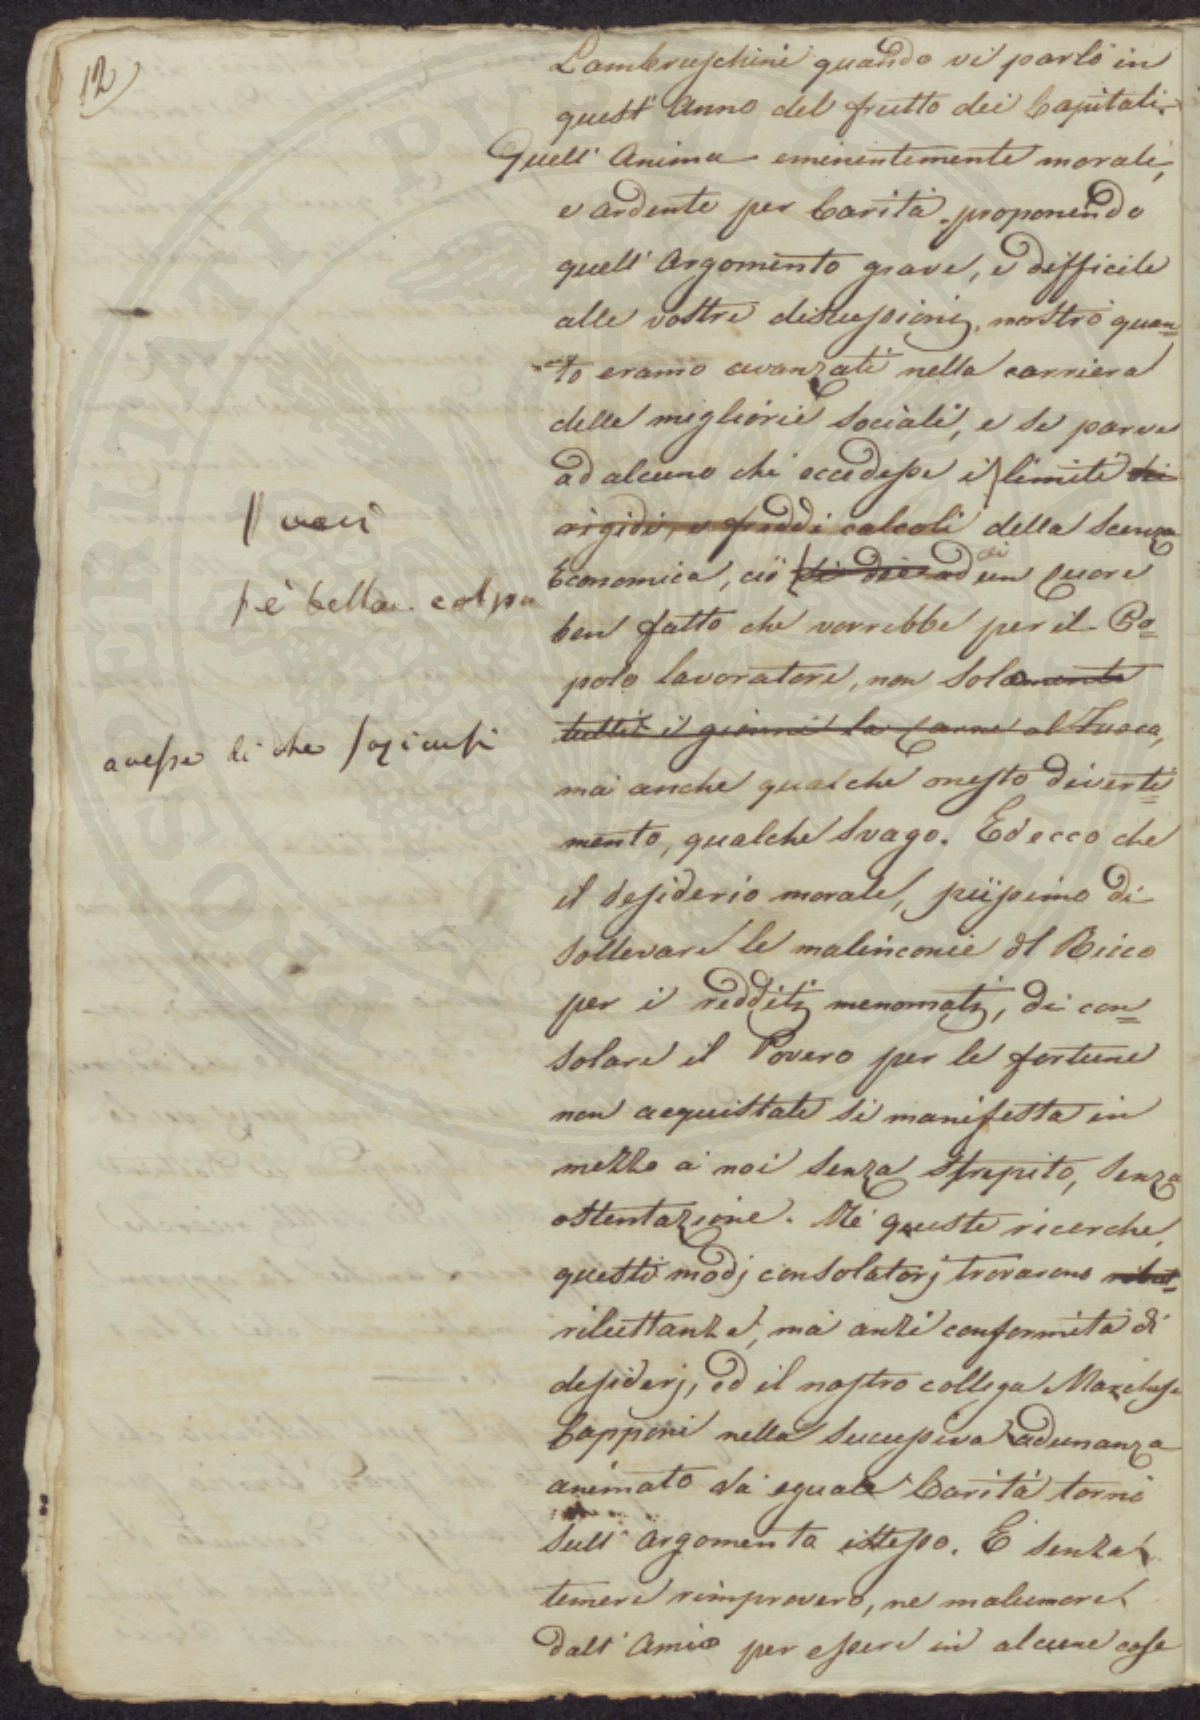 12
Lambruschini quando vi parlò in
quest' Anno del frutto dei Capitali.
Quell' Anima eminentemente morale,
e ardente per Carità, proponendo
quell' Argomento grave, e difficile
alle vostre discussioni, mostrò quan=
to eramo avanzati nella carriera
delle migliorie sociali, e se parve
ad alcuno che eccedesse i limiti dei
rigidi, e freddi calcoli della Scienza
veri
Economica, ciò si dee ad un Cuore
di
è bella colpa
ben fatto che vorrebbe per il Po=
polo lavoratore, non solamente
tutti i giorni la carne al Fuoco,
avesse di che
ma anche qualche onesto diverti=
mento, qualche svago. Ed ecco che
il desiderio morale, piissimo di
sollevare le malinconie del Ricco
per i redditi menomati, di con=
solare il Povero per le fortune
non acquistate si manifesta in
mezzo a noi senza strepito, senza
ostentazione. Nè queste ricerche,
questi modj consolatorj trovarono
riluttanza, ma anzi conformità di
desiderj, ed il nostro collega Marchese
Capponi nella successiva adunanza
animato da eguale Carità tornò
sull' Argomento istesso. E senza
temere rimprovero, ne malumore
dall' Amico per essere in alcune cose